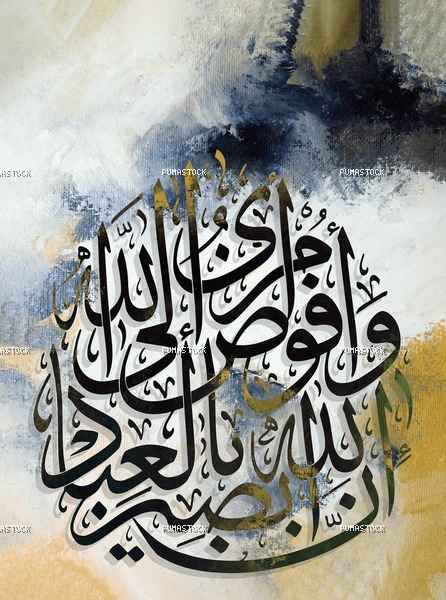 وَأُفَوِّضُ أَمْرِي إِلَى اللَّهِ
إِنَّ اللَّهَ بَصِيرٌ بِالْعِبَادِ
PUMASTOCK
PUMASTOCK
PUMASTOCK
PUMASTOCK
PUMASTOCK
PUMASTOCK
PUMASTOCK
PUMASTOCK
PUMASTOCK